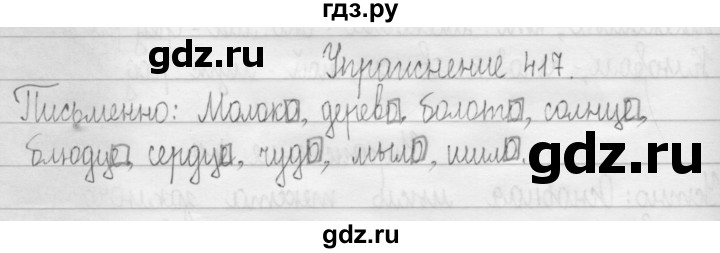 гдз.ру
gdz.ru gdz.ru
Упражнение 417.
Письменно: Молоко, дерево, болото, солнце,
gdz.ru gdz.ru
блюдце, сердце, чудо, мыло, шило.
gdz.ru